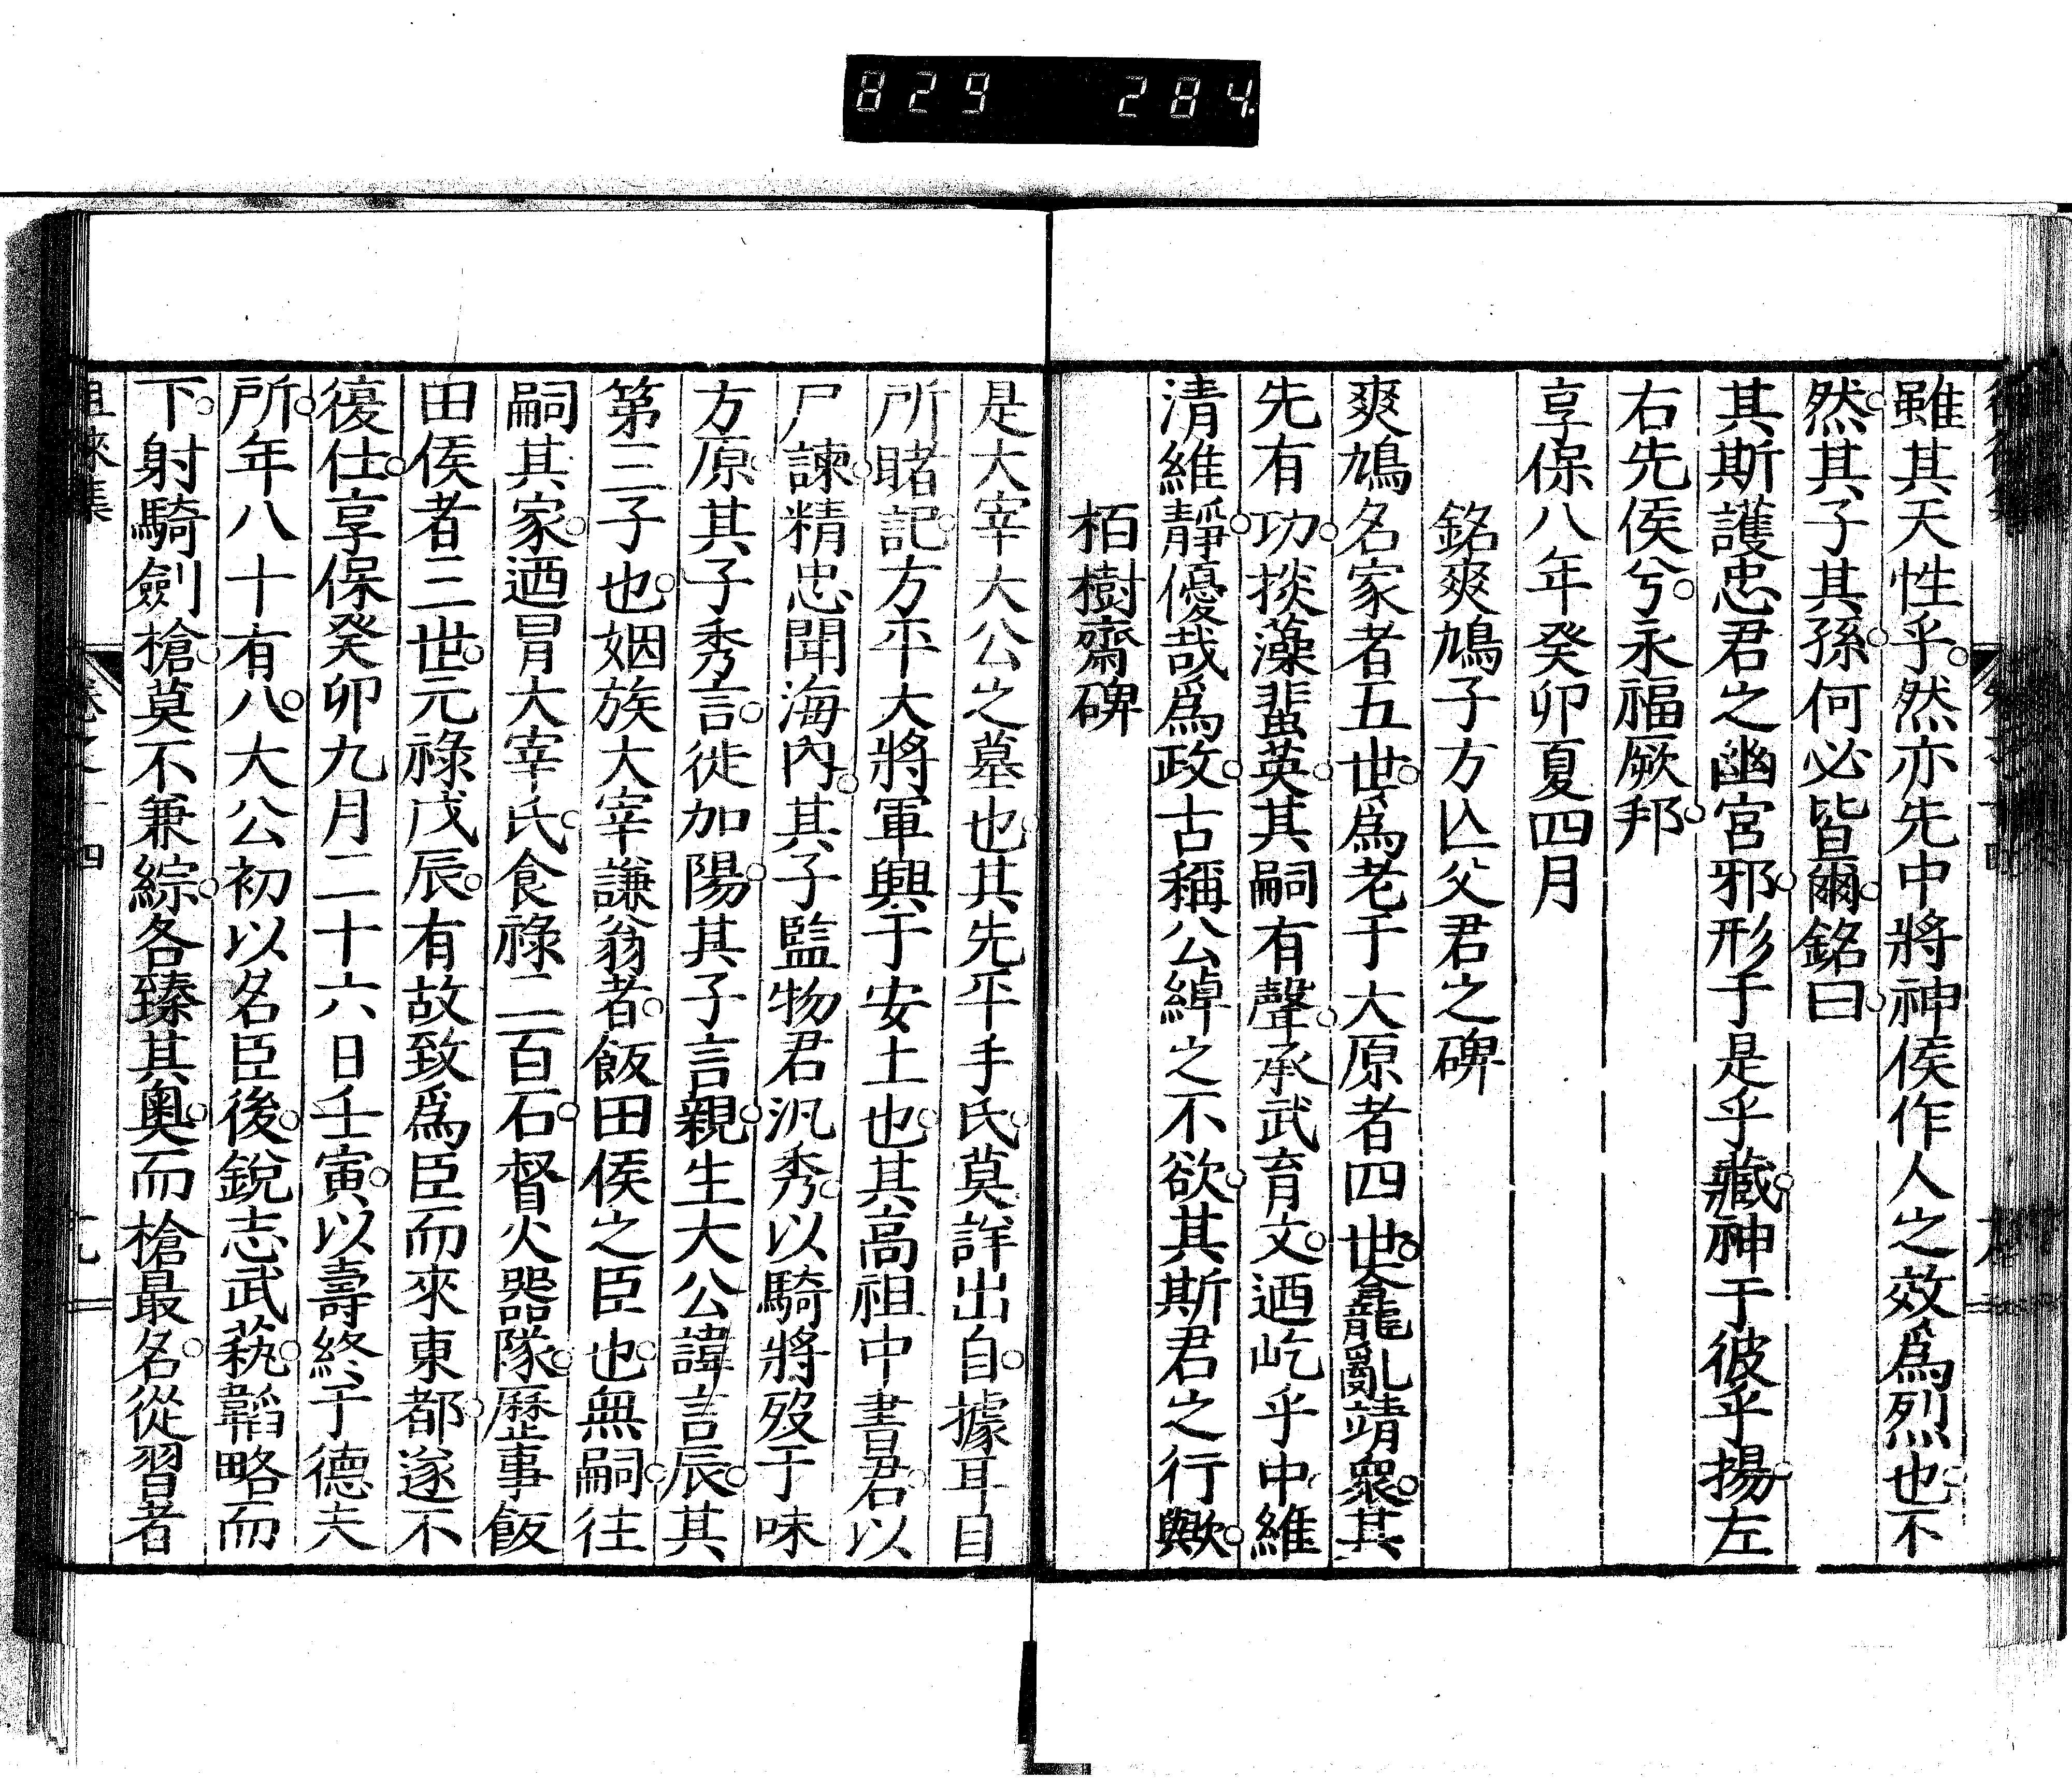 829 284
雖其天性乎。然亦先中將神侯作人之效爲烈也。不
然。其子其孫。何必皆爾。銘曰。
其斯護忠君之幽宮邪。形于是乎藏。神于彼乎揚。左
右先侯兮。永福厥邦。
享保八年癸卯夏四月
銘爽鳩子方亾父君之碑
爽鳩名家者五世。爲老于大原者四世。龕亂靖衆。其
先有功。掞藻蜚英。其嗣有聲。承武育文。迺屹乎中。維
清維靜。優哉爲政。古稱公綽之不欲。其斯君之行歟。
栢樹齋碑
是大宰大公之墓也。其先平手氏。莫詳出自。據耳目
所睹記。方平大將軍興于安土也。其高祖中書君。以
尸諫。精忠聞海內。其子監物君汎秀。以騎將歿于味
方原。其子秀言。徙加陽。其子言親。生大公諱言辰。其
第三子也。姻族大宰謙翁者。飯田侯之臣也。無嗣。往
嗣其家。迺冒大宰氏。食祿二百石。督火器隊。歷事飯
田侯者三世。元祿戊辰。有故致爲臣而來東都。遂不
復仕。享保癸卯九月二十六日壬寅。以壽終于德夫
所。年八十有八。大公初以名臣後。銳志武藝。韜略而
下。射騎劍槍。莫不兼綜。各臻其奧。而槍最名。從習者
徂徠集
卷之十四